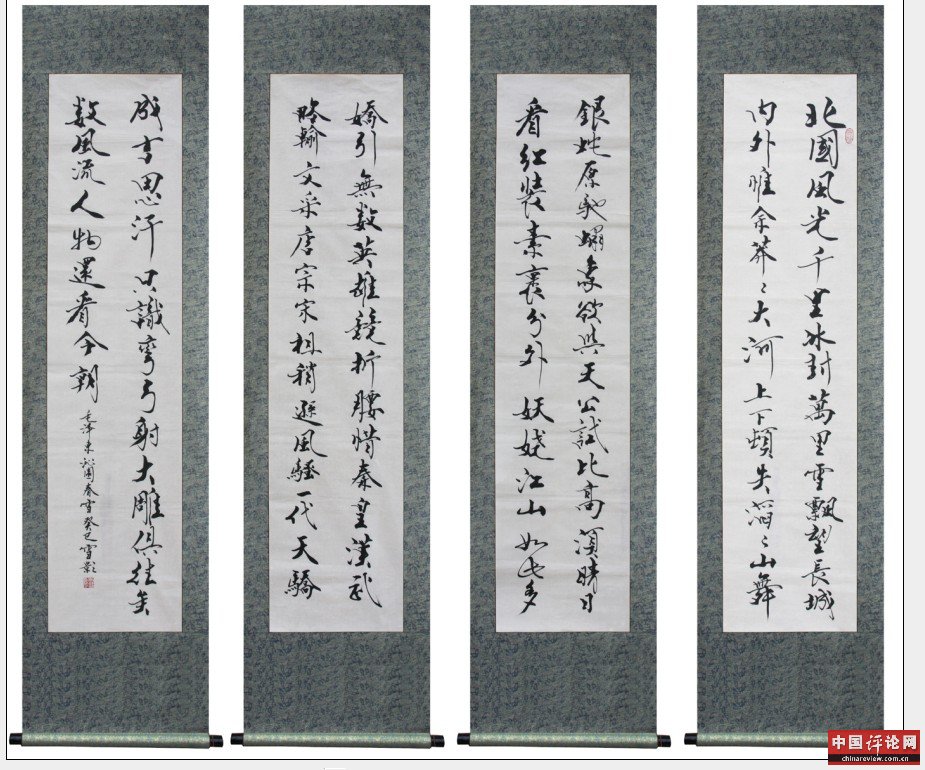 北國風光千里冰封萬里雪飄望長城
内外唯余莽〻大河上下頓失滔〻山舞
銀蛇原馳蠟象欲與天公試比高須晴日
看紅裝素裹分外妖嬈江山如此多
嬌引無数英雄競折腰惜秦皇漢武
略輸文采唐宗宋祖稍遜風騷一代天驕
成吉思汗只識彎弓射大雕俱往矣
数風流人物還看今朝 毛澤東沁園春雪癸巳雪影
中国评论网
www.chinareview.com.cn